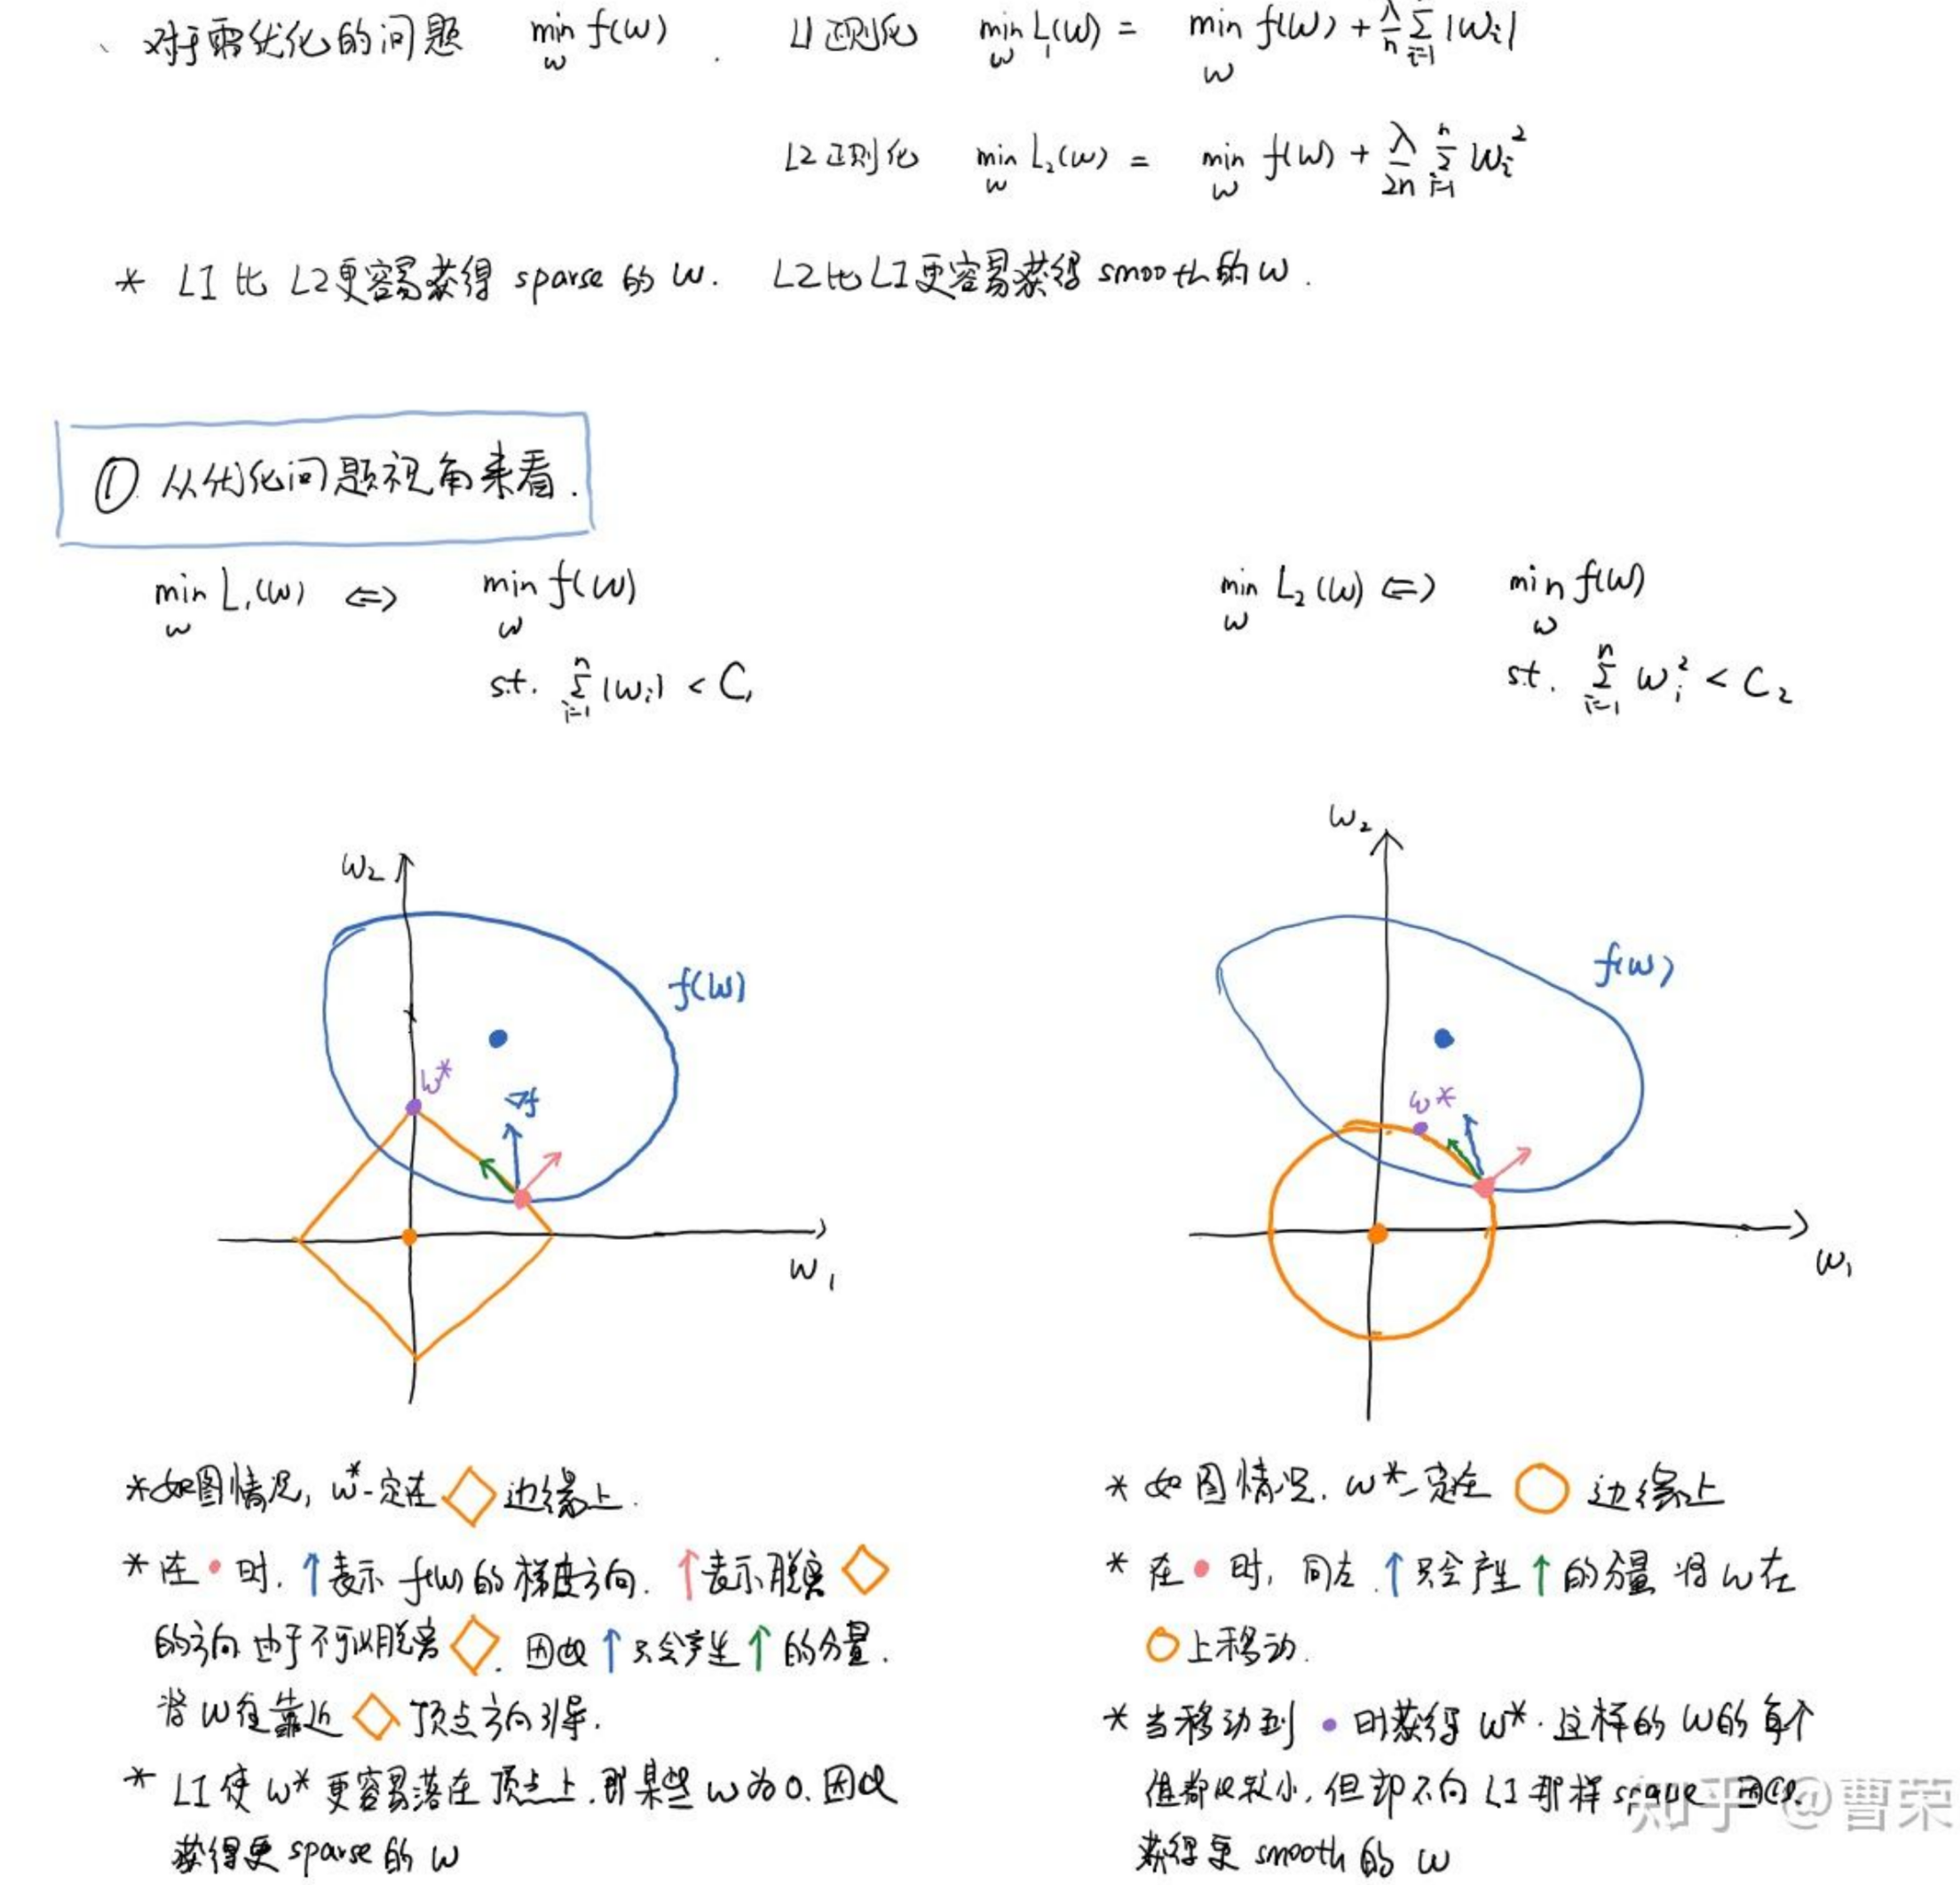 、对于需优化的问题 min_w f(w) . L1正则化 min_w L_1(w) = min_w f(w) + λ/n Σ_{i=1} |w_i|
L2正则化 min_w L_2(w) = min_w f(w) + λ/2n Σ_{i=1}^n w_i^2
* L1 比 L2更容易获得 sparse 的 w. L2比L1更容易获得 smooth的w.
① 从优化问题视角来看.
min_w L_1(w) <=> min_w f(w)
s.t. Σ_{i=1}^n |w_i| < C_1
min_w L_2(w) <=> min_w f(w)
s.t. Σ_{i=1}^n w_i^2 < C_2
w_2
f(w)
w*
∇f
w_1
w_2
f(w)
w*
w_1
*如图情况, w*一定在 ◇ 边缘上.
*在 • 时. ↑表示 f(w)的梯度方向. ↑表示脱离 ◇
的方向 由于不可以脱离 ◇. 因此 ↑ 只会产生 ↑ 的分量.
将 w 往靠近 ◇ 顶点方向引导.
* L1 使 w* 更容易落在 顶点上. 即某些 w 为 0. 因此
获得更 sparse 的 w
* 如图情况. w*一定在 ○ 边缘上
* 在 • 时, 同左. ↑只会产生 ↑ 的分量 将 w 在
○上移动.
* 当移动到 • 时获得 w*. 这样的 w的 每个
值都比较小, 但却不向 L1 那样 sparse 因此.
获得更 smooth 的 w
知乎 @曹荣